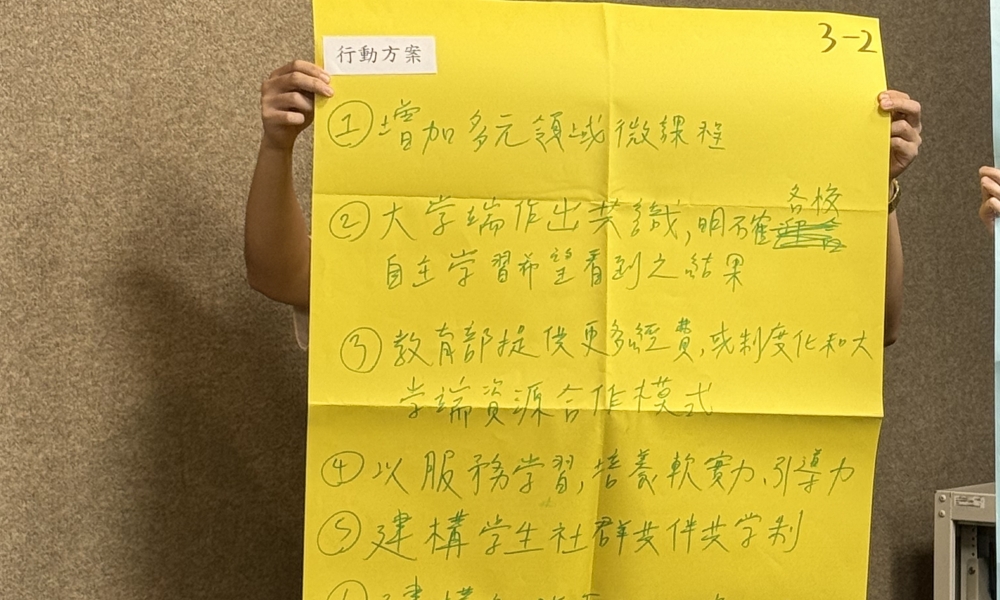 行動方案
3-2
①增加多元領域微課程
②大学端作出共識,明確各校
自主学習希望看到之結果
③教育部提供更多經費,或制度化和大
学端資源合作模式
④以服務学習,培養軟實力、引導力
⑤建構学生社群共伴共学制